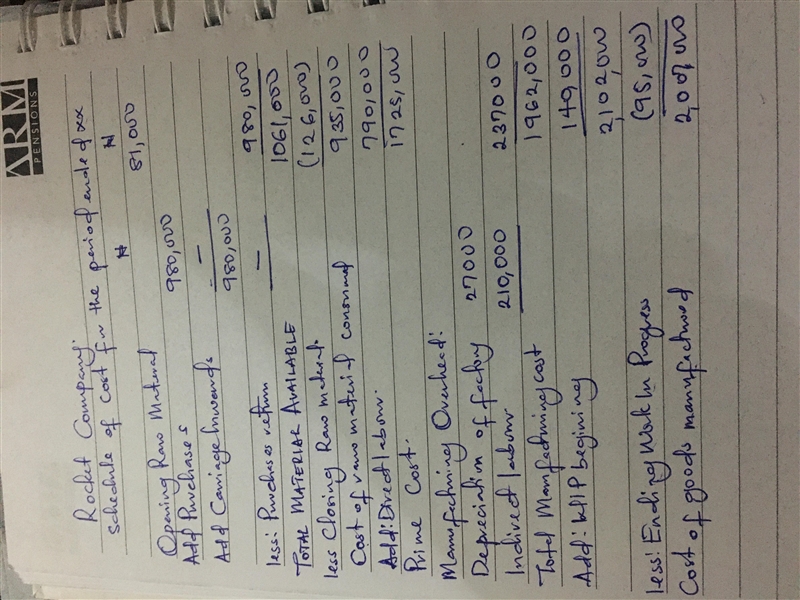 ARM
PENSIONS
Rocket Company.
Schedule of Cost for the period ended xx
₦ ₦
Opening Raw Material 81,000
Add Purchases 980,000
Add Carriage Inwards —
980,000
less: Purchases return — 980,000
TOTAL MATERIAL AVAILABLE 1061,000
less Closing Raw material. (126,000)
Cost of raw material consumed 935,000
Add: Direct labour. 790,000
Prime Cost. 1725,000
Manufacturing Overhead:
Depreciation of factory 27000
Indirect labour 210,000 237000
Total Manufacturing cost 1962,000
Add: WIP begining 140,000
2,102,000
less: Ending Work In Progress (95,000)
Cost of goods manufactured 2,007,000